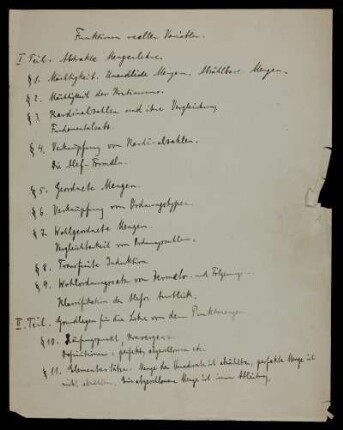 Funktionen reeller Variablen.
I Teil. Abstrakte Mengenlehre.
§ 1. Mächtigkeit. Unendliche Mengen. Abzählbare Mengen.
§ 2. Mächtigkeit des Kontinuums.
§ 3 Kardinalzahlen und ihre Vergleichung
Fundamentalsatz.
§ 4. Verknüpfung von Kardinalzahlen.
Die Alef-Formeln.
§ 5. Geordnete Mengen.
§ 6. Verknüpfung von Ordnungstypen.
§ 7. Wohlgeordnete Mengen.
Vergleichbarkeit von Ordnungszahlen.
§ 8. Transfinite Induktion
§ 9. Wohlordnungssatz von Zermelo und
Klassifikation der Alefs. Ausblick.
II Teil. Grundlagen für die Lehre von den Punktmengen
§ 10. Häufungspunkt, Konvergenz
Definitionen: perfekt, abgeschlossen etc.
§ 11. Elementare Sätze. Menge der ist abzählbar, perfekte Menge ist
nicht abzählbar. Eine abgeschlossene Menge ist immer Ableitung.